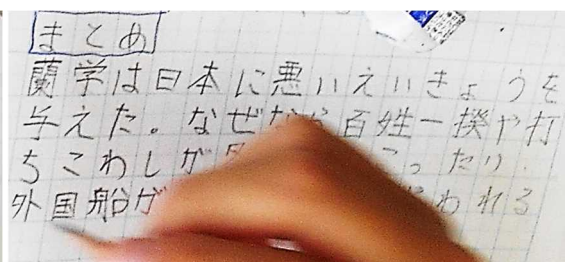 まとめ
蘭学は日本に悪いえいきょうを
与えた。なぜなら百姓一揆や打
ちこわしが こったり、
外国船が われる